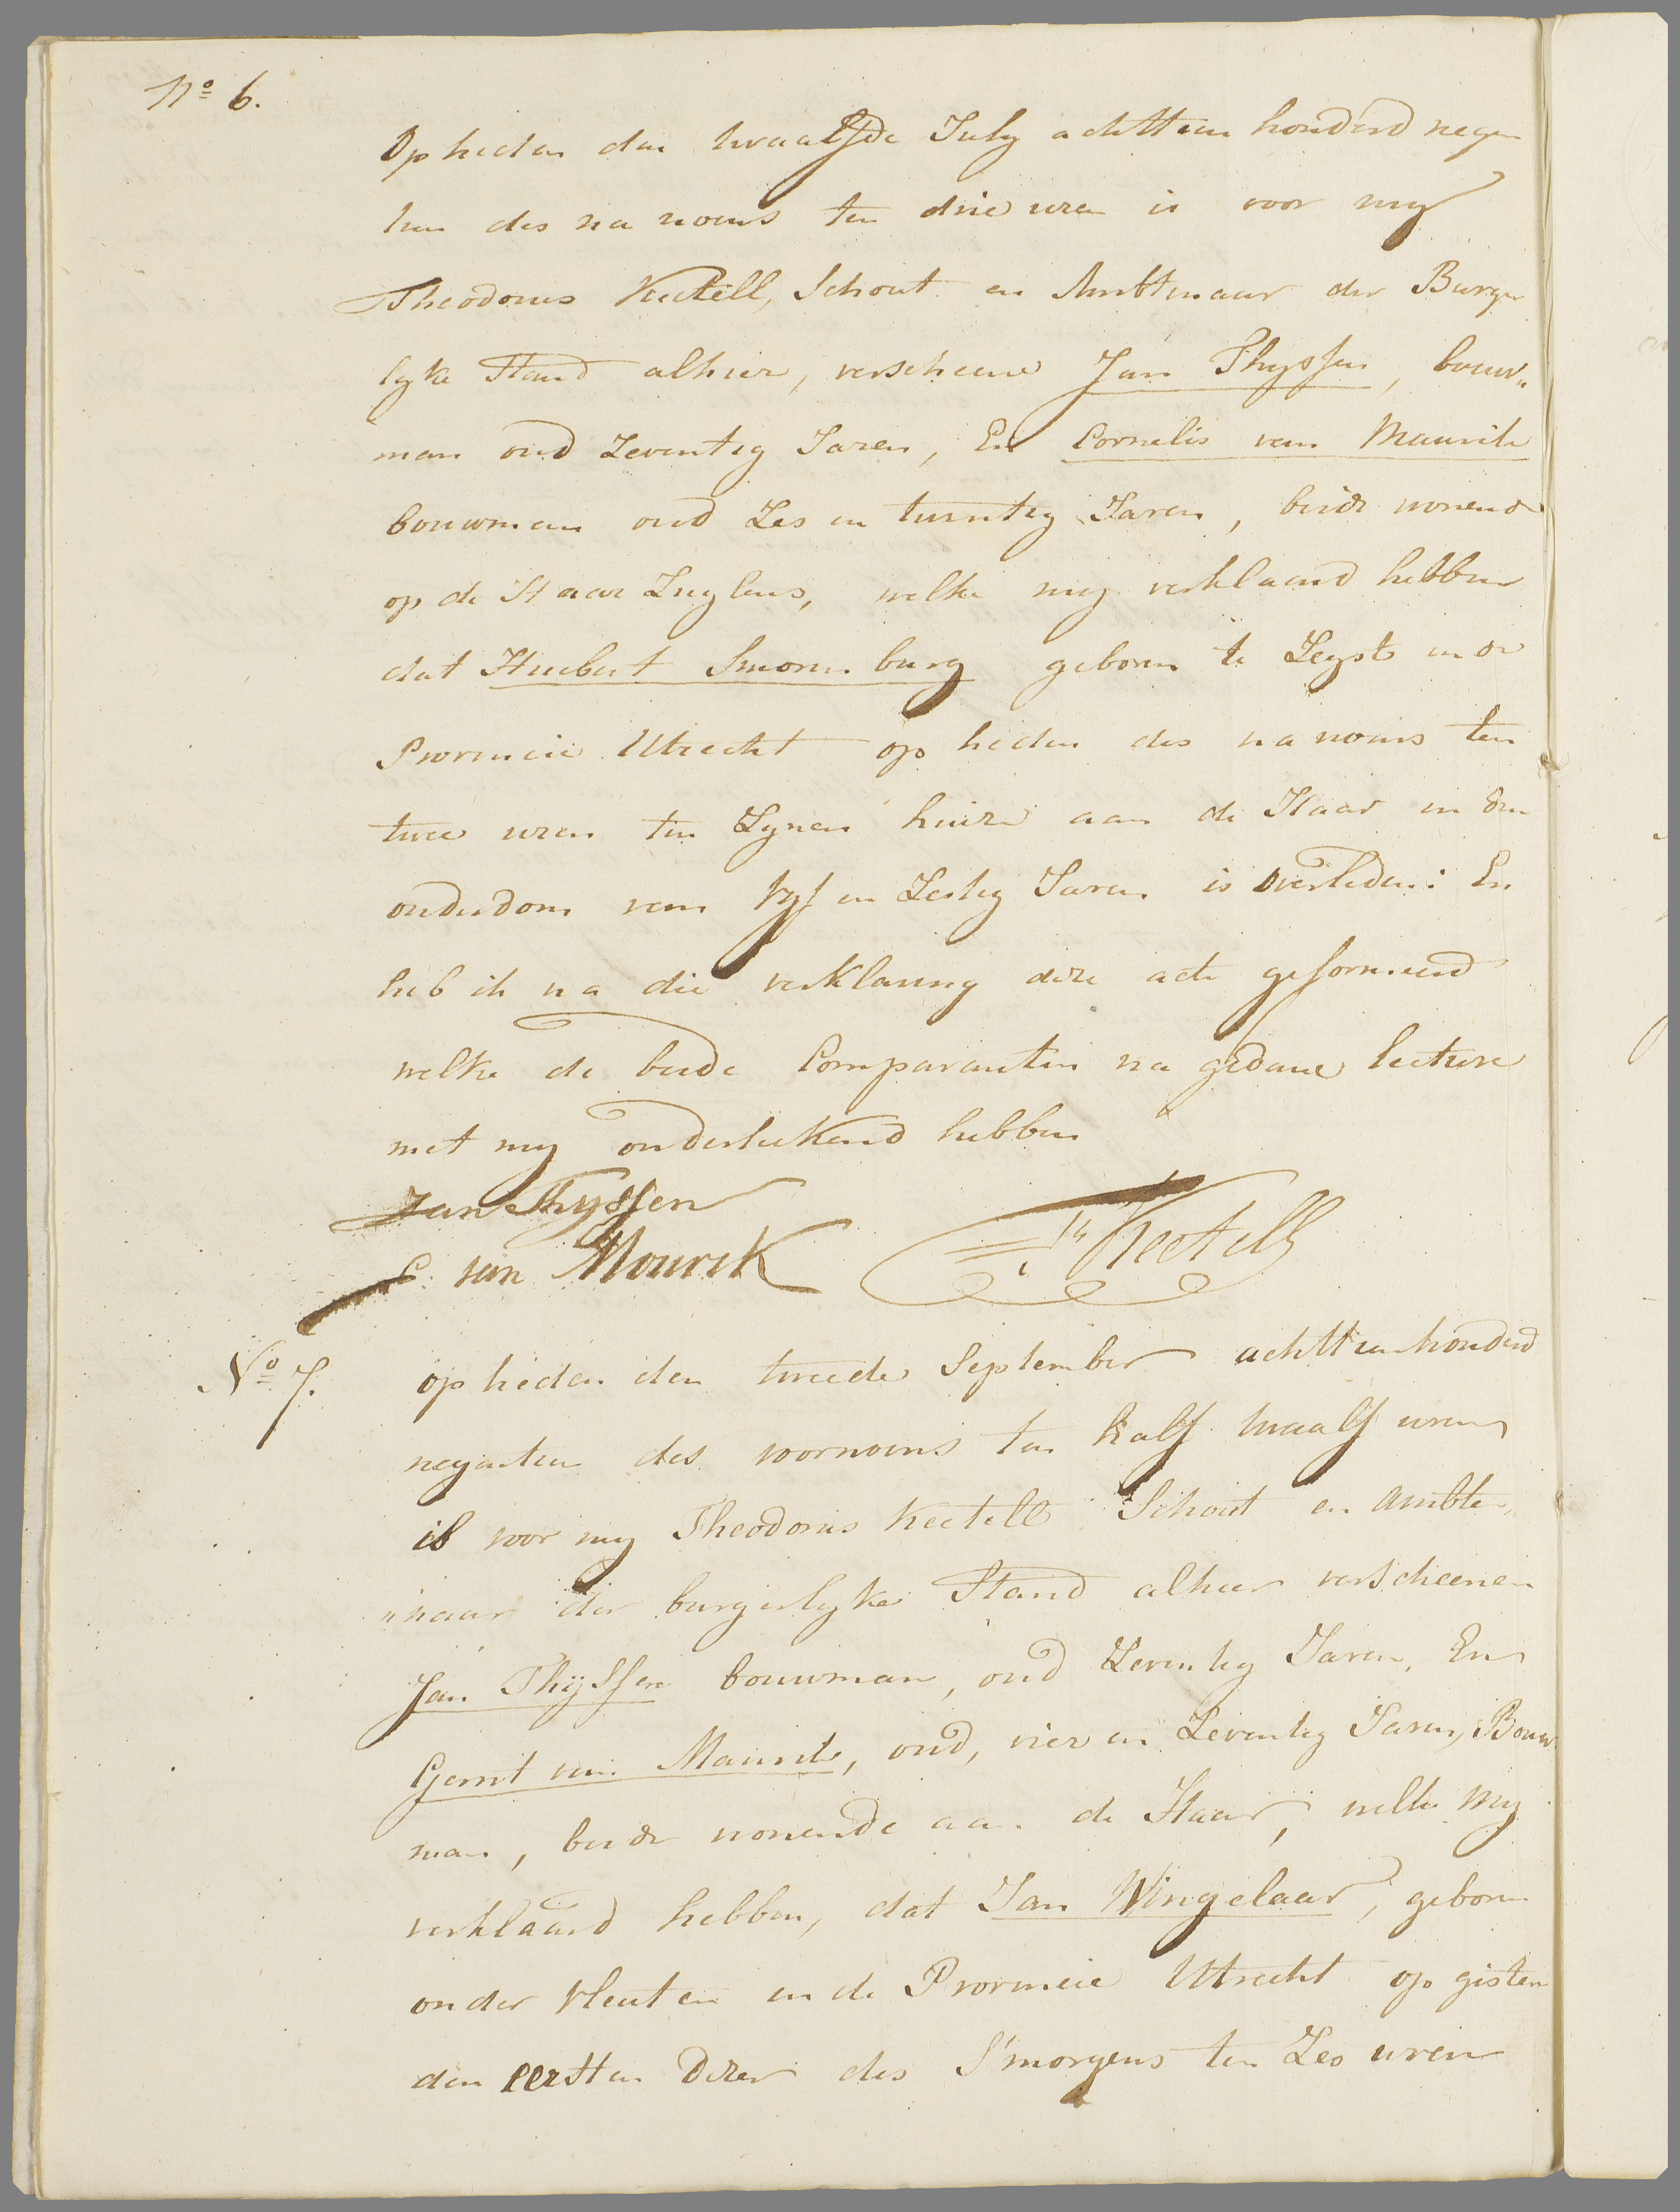 No 6.
Op heden den twaalfde July achttien honderd negen
tien des na noens ten drie uren is voor my
Theodorus Keetell, Schout en Ambtenaar der Burger
lyke Stand alhier, verscheene Jan Thyssen, bouw„
man oud Zeventig Jaren, En Cornelis van Maurik
bouwman oud Zes en twintig Jaren, beide wonend
op de Haar Zuylens, welke my verklaard hebben
dat Huebert Smorenburg geboren te Zeyst in de
Provincie Utrecht op heden des na noens ten
twee uren ten Zynen huize aan de Haar in den
ouderdom van Vyf en Zestig Jaren is overleden: En
heb ik na die verklaring deze acte geformeerd
welke de beide Comparanten na gedane lecture
met my onderteekend hebben
Jan Thyssen
C. van Mourik Th Keetell
No 7.
op heden den tweede September achttienhonderd
negentien des voornoens ten half twaalf uren
is voor my Theodorus Keetell Schout en Ambte„
„naar der burgerlyke Stand alhier verscheenen
Jan Thijssen bouwman, oud Zeventig Jaren, En
Gerrit van Maurik, oud, vier en Zeventig Jaren, Bouw
man, beide wonende aan de Haar, welke my
verklaard hebben, dat Jan Wingelaar, geboren
onder Vleuten in de Provincie Utrecht op gisten
den eersten dezer des S'morgens ten Zes uren